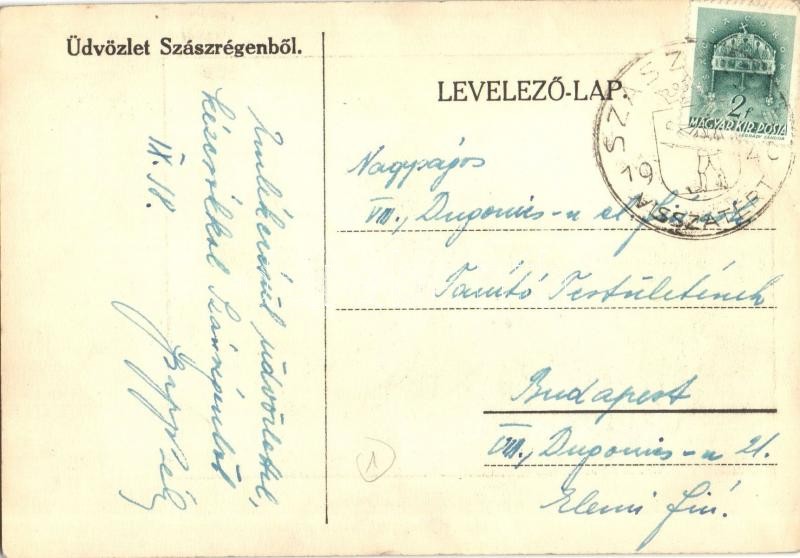 Üdvözlet Szászrégenből.
LEVELEZŐ-LAP.
2f
MAGYAR KIR. POSTA
SZÁSZ
VISSZATÉRT
19
Emlékezésül üdvözlettel,
kézcsókkal Szászrégenből
IX. 18.
Nagyságos
VIII., Dugonics-u 21.
Tanító Testületének
Budapest
VIII., Dugonics-u 21.
Elemi fiú.
1